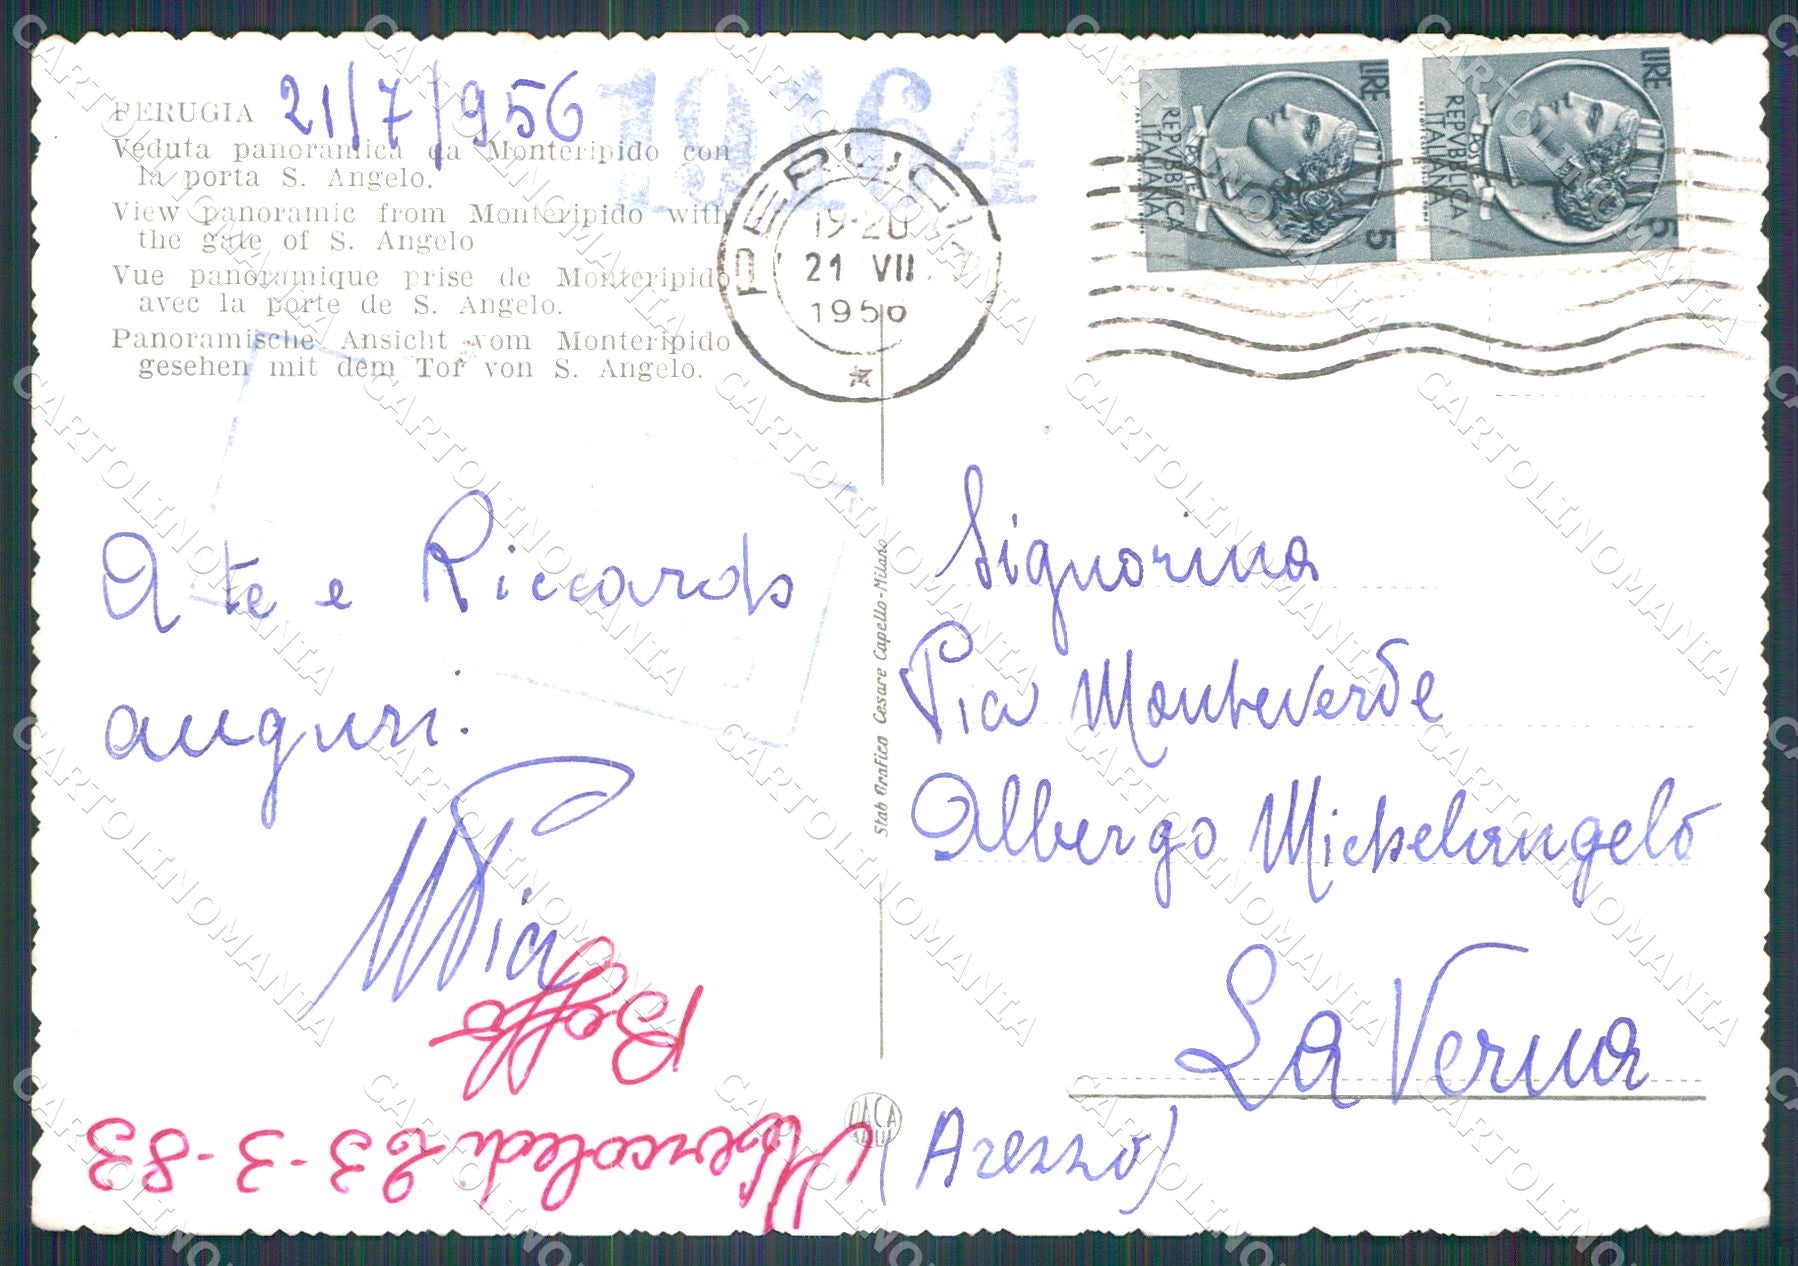 PERUGIA 21/7/956
Veduta panoramica da Monteripido con
la porta S. Angelo.
View panoramic from Monteripido with
the gate of S. Angelo
Vue panoramique prise de Monteripido
avec la porte de S. Angelo.
Panoramische Ansicht vom Monteripido
gesehen mit dem Tor von S. Angelo.
19164
PERUGIA
19-20
21 VII
1956
LIRE 5
REPVBBLICA
ITALIANA
LIRE 5
REPVBBLICA
ITALIANA
A te e Riccardo
auguri.
Pia
Beffo
Mercoledì 23-3-83
Stab Grafico Cesare Capello-Milano
Signorina
Pia Monteverde
Albergo Michelangelo
La Verna
(Arezzo)
CARTOLINOMANIA